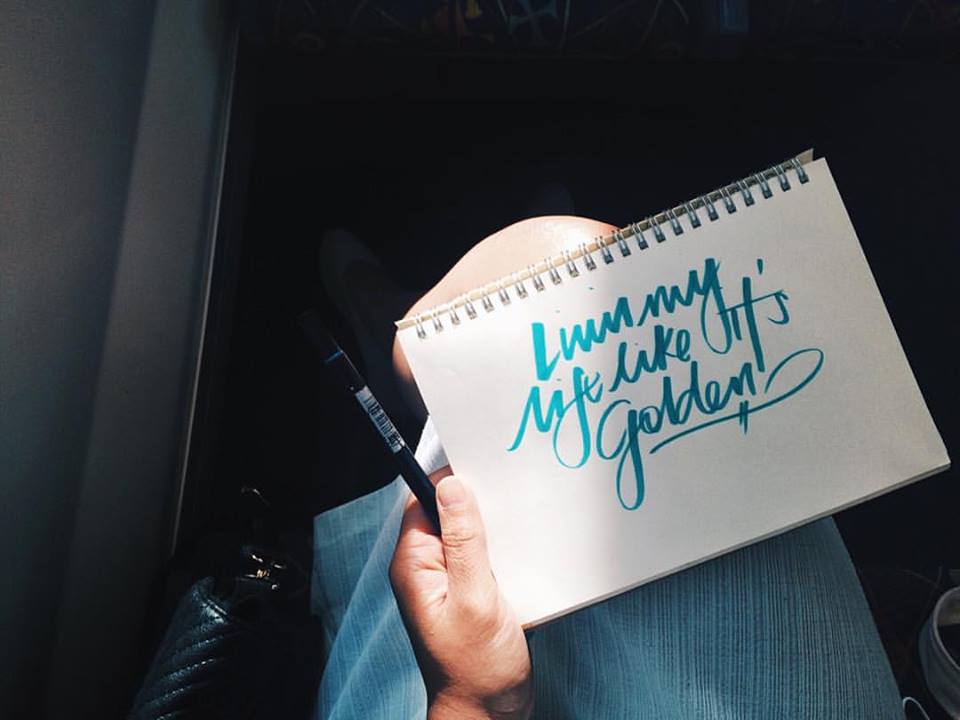 Livin my
life like it's
golden